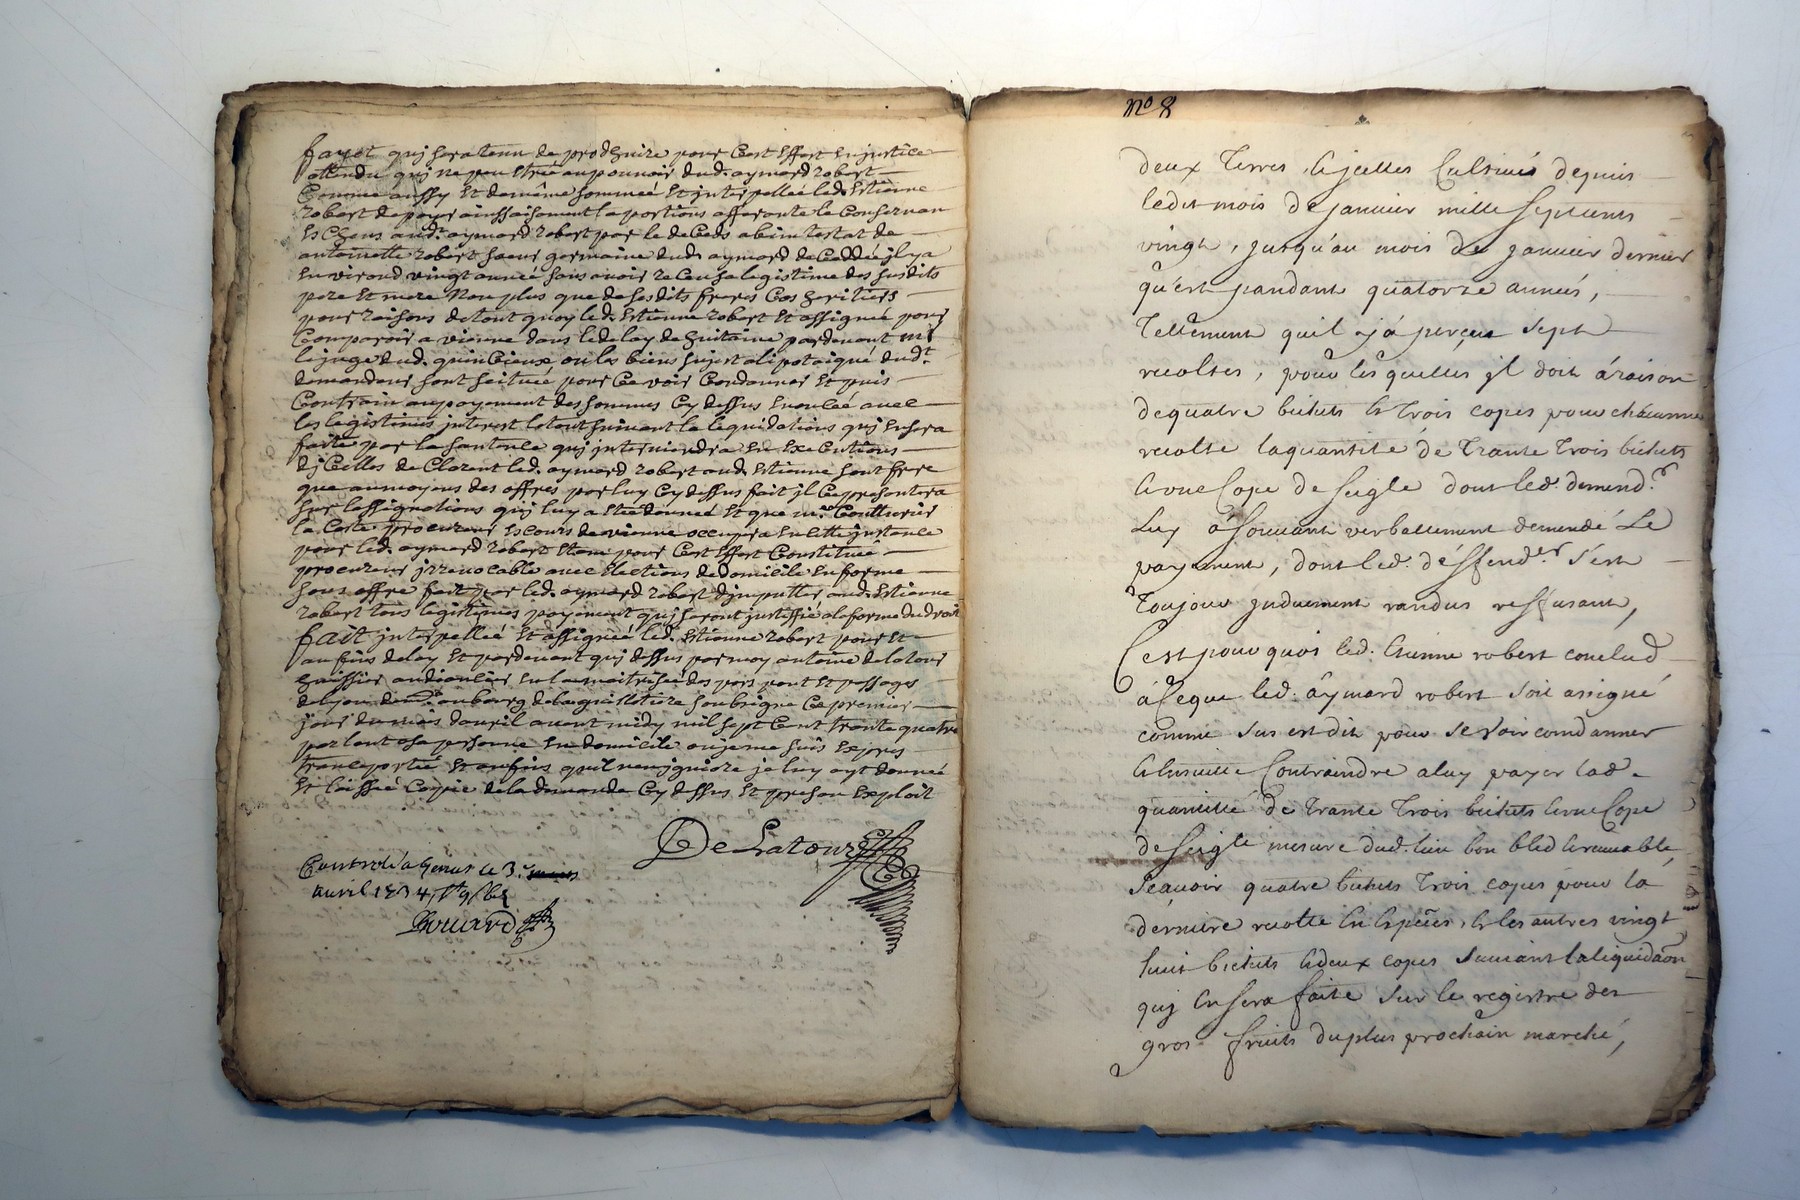 fayot quj sera tenu de prodhuire pour Cest Effest En justice
attendu quj ne peu Etre au pouvoir dud. aymard robert
Comme aussy Et de même sommeé Et jnterpelleé led. Estienne
robert de payer ainssaisoment la portions afferante le Consernan
Es Chens aud.t aymard robert par le deCeds abimtestat de
antoinette robert soeur germaine dud. aymard deCeddée jl y a
Environd vingt anneé sans avoir re Ceu sa legistime des susdits
pere Et mere Non plus que de sesdits freres Cos heritiers
pour raisons de tout quoy led. Estienne robert Est assigneé pour
Comparoir a vienne dans le delay de huitaine pardevant mr
le juge dud. quinCieux ou les biens sujest a lipotaiqué dud.t
demandeur sont scitueé pour Ce voir Condanner Et puis
Contrain au payement des sommes Cy dessus Enonleé avec
les legistimes jnterest le tout suivant la lequidations quj En sera
faite par la santence quj jnterviendra En ExeCutions
dj Celles de Clarent led. aymard robert aud. Estienne sont frere
que au moyens des offres par luy Cy dessus fait jl Ce presentera
sur lassignations quj luy a Eté donneé Et que mr.
la Coste procureur Es Cours de vienne occupera En Cette jnstance
pour led. aymard robert Etan pour Cest Effest Constitueé
procureur jrrevocable avec Elections de domicile En forme
sous offre fait par led. aymard robert djmputter aud. Estienne
robert tous legistimes payement quj seront justiffié a la forme du droit
fait jnterpelleé Et assigneé led. Estienne robert pour Et
au fins delay Et pardevant quj dessus par moy antoine delatour
huissier audiancier En la maitrise des pors pont Et passages
de lyon dem.t au bourg de la guillotiere soubsigne Ce premier
jour du mois davril avant midy mil sept Cent trante quatre
parlant a sa personne En domicile ou je me suis Expres
transportée Et au fins quil n'en jgniore je luy ayt donneé
Et laisseé Copie de la demande Cy dessus Et presan Exploit
DeLatour
Controlé a Genas le 3.
avril 1734
Bouard
no 8
deux Terres Ajcelles Cultivés depuis
ledit mois de janvier mille septcents
vingt, jusqu'au mois de janvier dernier
qu'est pandant quatorze années,
Tellement quil ajà perçeu sept
recoltes, pour lesquelles jl doit á raison
de quatre bichets & Trois copes pour chacunne
recolte la quantité de Trante Trois bichets
& vne Cope de seigle dont led. demend.r
Luy à souvant verballement demendé Le
payement, dont led. déffend.r s'est
Toujour jnduement randus reffusant,
C'est pourquoi led. Etienne robert conclud
à ce que led. aymard robert soit assigné
comme sus est dit pour se voir condanner
& Ensuitte Contraindre a luy payer lad.
quantité de Trante Trois bichets & vne Cope
de seigle mesure dud. lieu bon bled & recevable,
sçavoir quatre bichets Trois copes pour la
derniere recolte En Espèces, & les autres vingt
huit bichets & deux copes suivant la liquidãon
quj En sera faite sur le registre des
gros fruits du plus prochain marché,